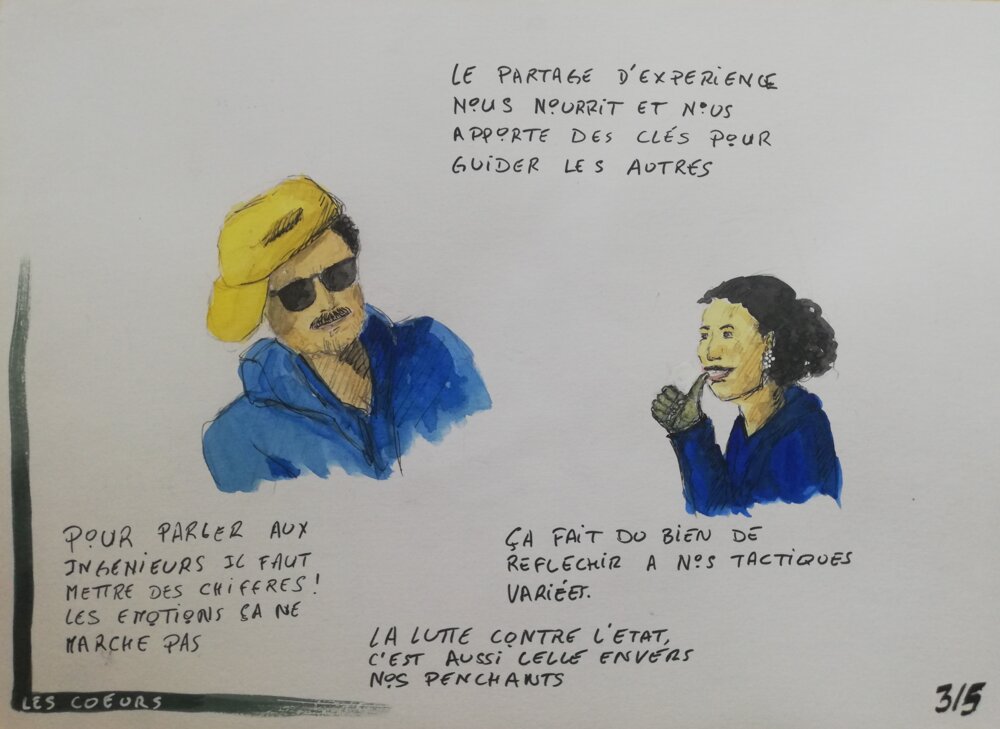 LE PARTAGE D'EXPERIENCE
NOUS NOURRIT ET NOUS
APPORTE DES CLÉS POUR
GUIDER LES AUTRES
POUR PARLER AUX
INGENIEURS IL FAUT
METTRE DES CHIFFRES!
LES EMOTIONS ÇA NE
MARCHE PAS
ÇA FAIT DU BIEN DE
REFLECHIR A NOS TACTIQUES
VARIÉES.
LA LUTTE CONTRE L'ETAT,
C'EST AUSSI CELLE ENVERS
NOS PENCHANTS
LES COEURS
3/5